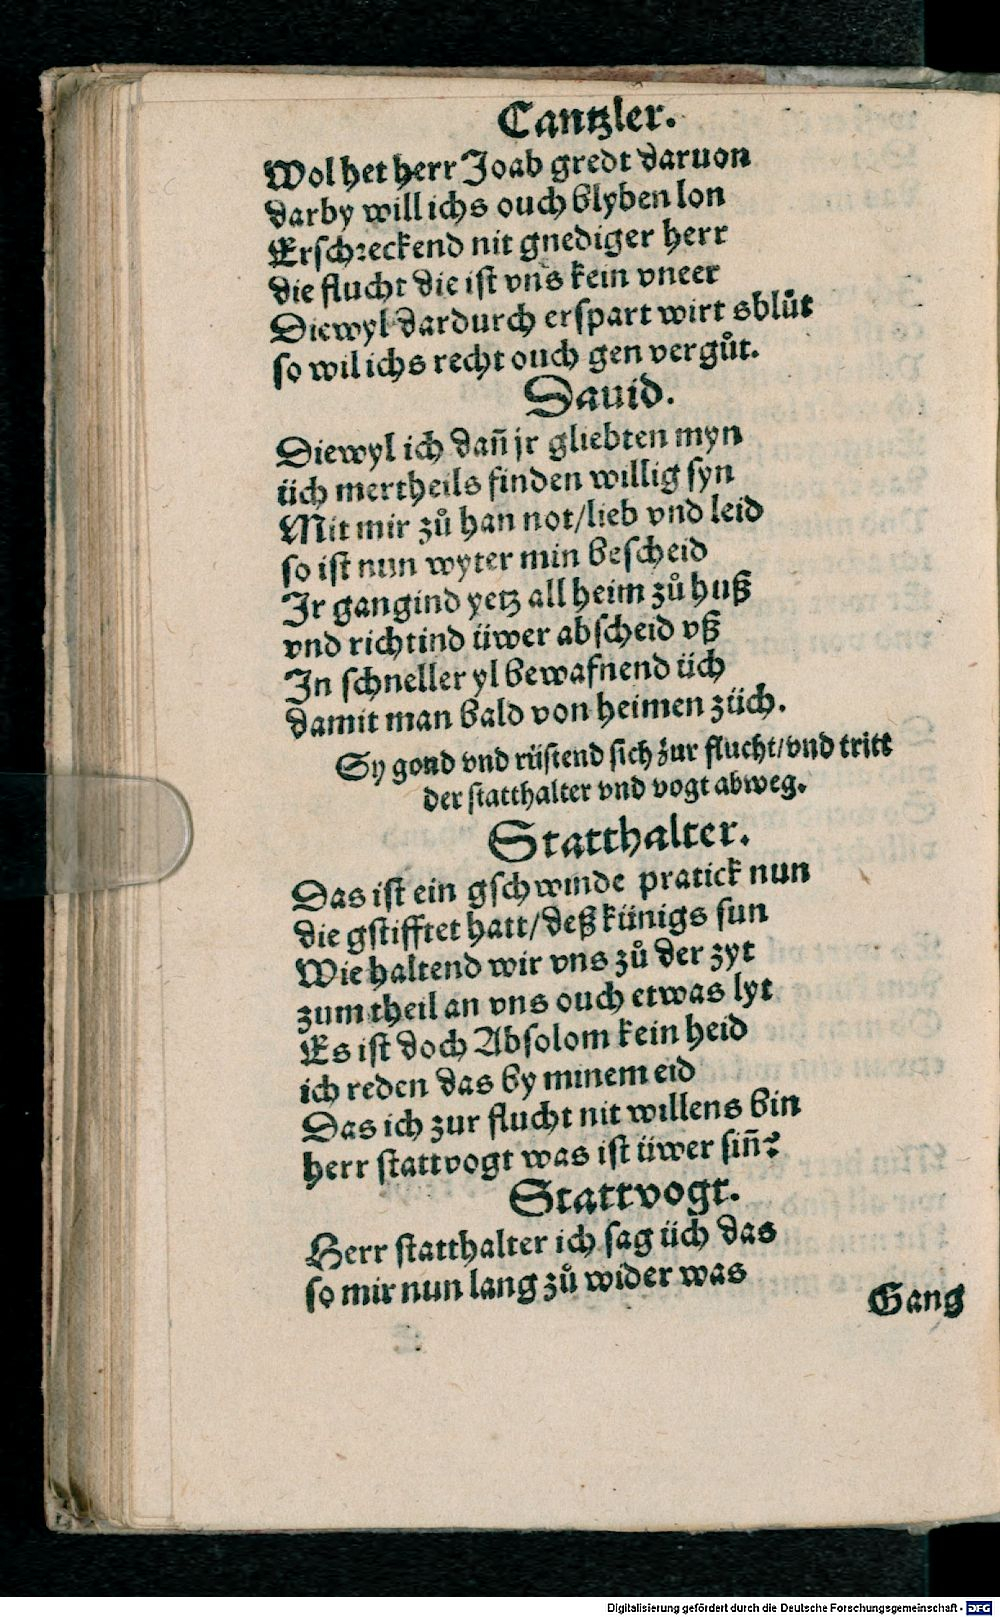 Cantzler.
Wol het herr Joab gredt daruon
darby will ichs ouch blyben lon
Erschreckend nit gnediger herr
die flucht die ist vns kein vneer
Diewyl dardurch erspart wirt sblůt
so wil ichs recht ouch gen vergůt.
Dauid.
Diewyl ich dañ jr gliebten myn
üch mertheils finden willig syn
Mit mir zů han not/lieb vnd leid
so ist nun wyter min bescheid
Ir gangind yetz all heim zů huß
vnd richtind üwer abscheid vß
In schneller yl bewafnend üch
damit man bald von heimen züch.
Sy gond vnd rüstend sich zur flucht/vnd tritt
der statthalter vnd vogt abweg.
Statthalter.
Das ist ein gschwinde pratick nun
die gstifftet hatt/deß künigs sun
Wie haltend wir vns zů der zyt
zum theil an vns ouch etwas lyt
Es ist doch Absolom kein heid
ich reden das by minem eid
Das ich zur flucht nit willens bin
herr stattvogt was ist üwer siñ?
Stattvogt.
Herr statthalter ich sag üch das
so mir nun lang zů wider was
Gang
Digitalisierung gefördert durch die Deutsche Forschungsgemeinschaft - DFG